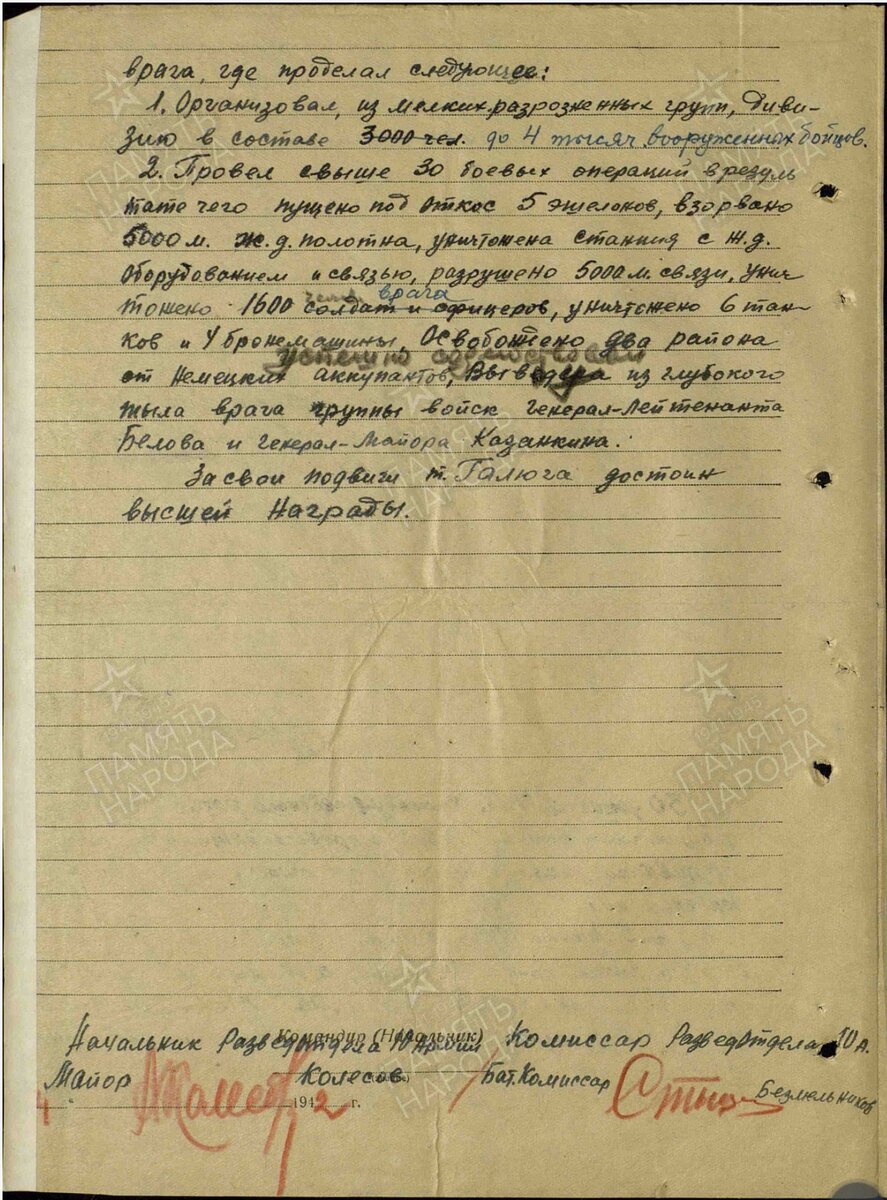 врага, где проделал следующее:
1. Организовал, из мелких разрозненных групп, диви-
зию в составе 3000 чел. до 4 тысяч вооруженных бойцов.
2. Провел свыше 30 боевых операций в резуль
тате чего пущено под откос 5 эшелонов, взорвано
5000 м. ж.д. полотна, уничтожена станция с ж.д.
оборудованием и связью, разрушено 5000 м. связи, унич
врага
тожено 1600 солдат и офицеров, уничтожено 6 тан-
ков и 4 бронемашины, Освобождено два района
успешно содействовал
от немецких аккупантов, Выведена из глубокого
тыла врага группы войск Генерал-Лейтенанта
Белова и Генерал-Майора Казанкина.
За свои подвиги т. Галюга достоин
высшей Награды.
ПАМЯТЬ НАРОДА
ПАМЯТЬ НАРОДА
Командир (Начальник)
Начальник Разведотдела 10 Армии Комиссар Разведотдела 10 А.
Майор Колесов Бат. Комиссар Безмельников
1942 г.